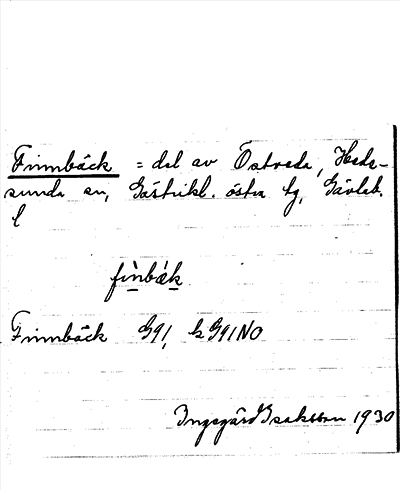 Finnbäck = del av Östveda, Heds-
sunda sn, Gästrikl. östra tg, Gävleb.
l
fìnbæ̀k
Finnbäck G91, k G91NO
Ingegärd Isaksson 1930